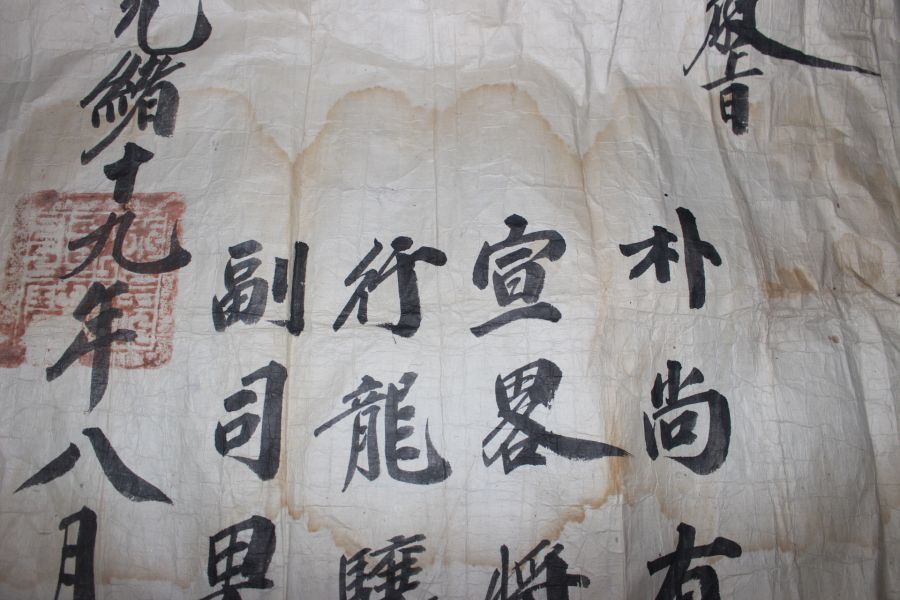 旨
朴尚有
宣畧將
行龍驤
副司果
光緒十九年八月